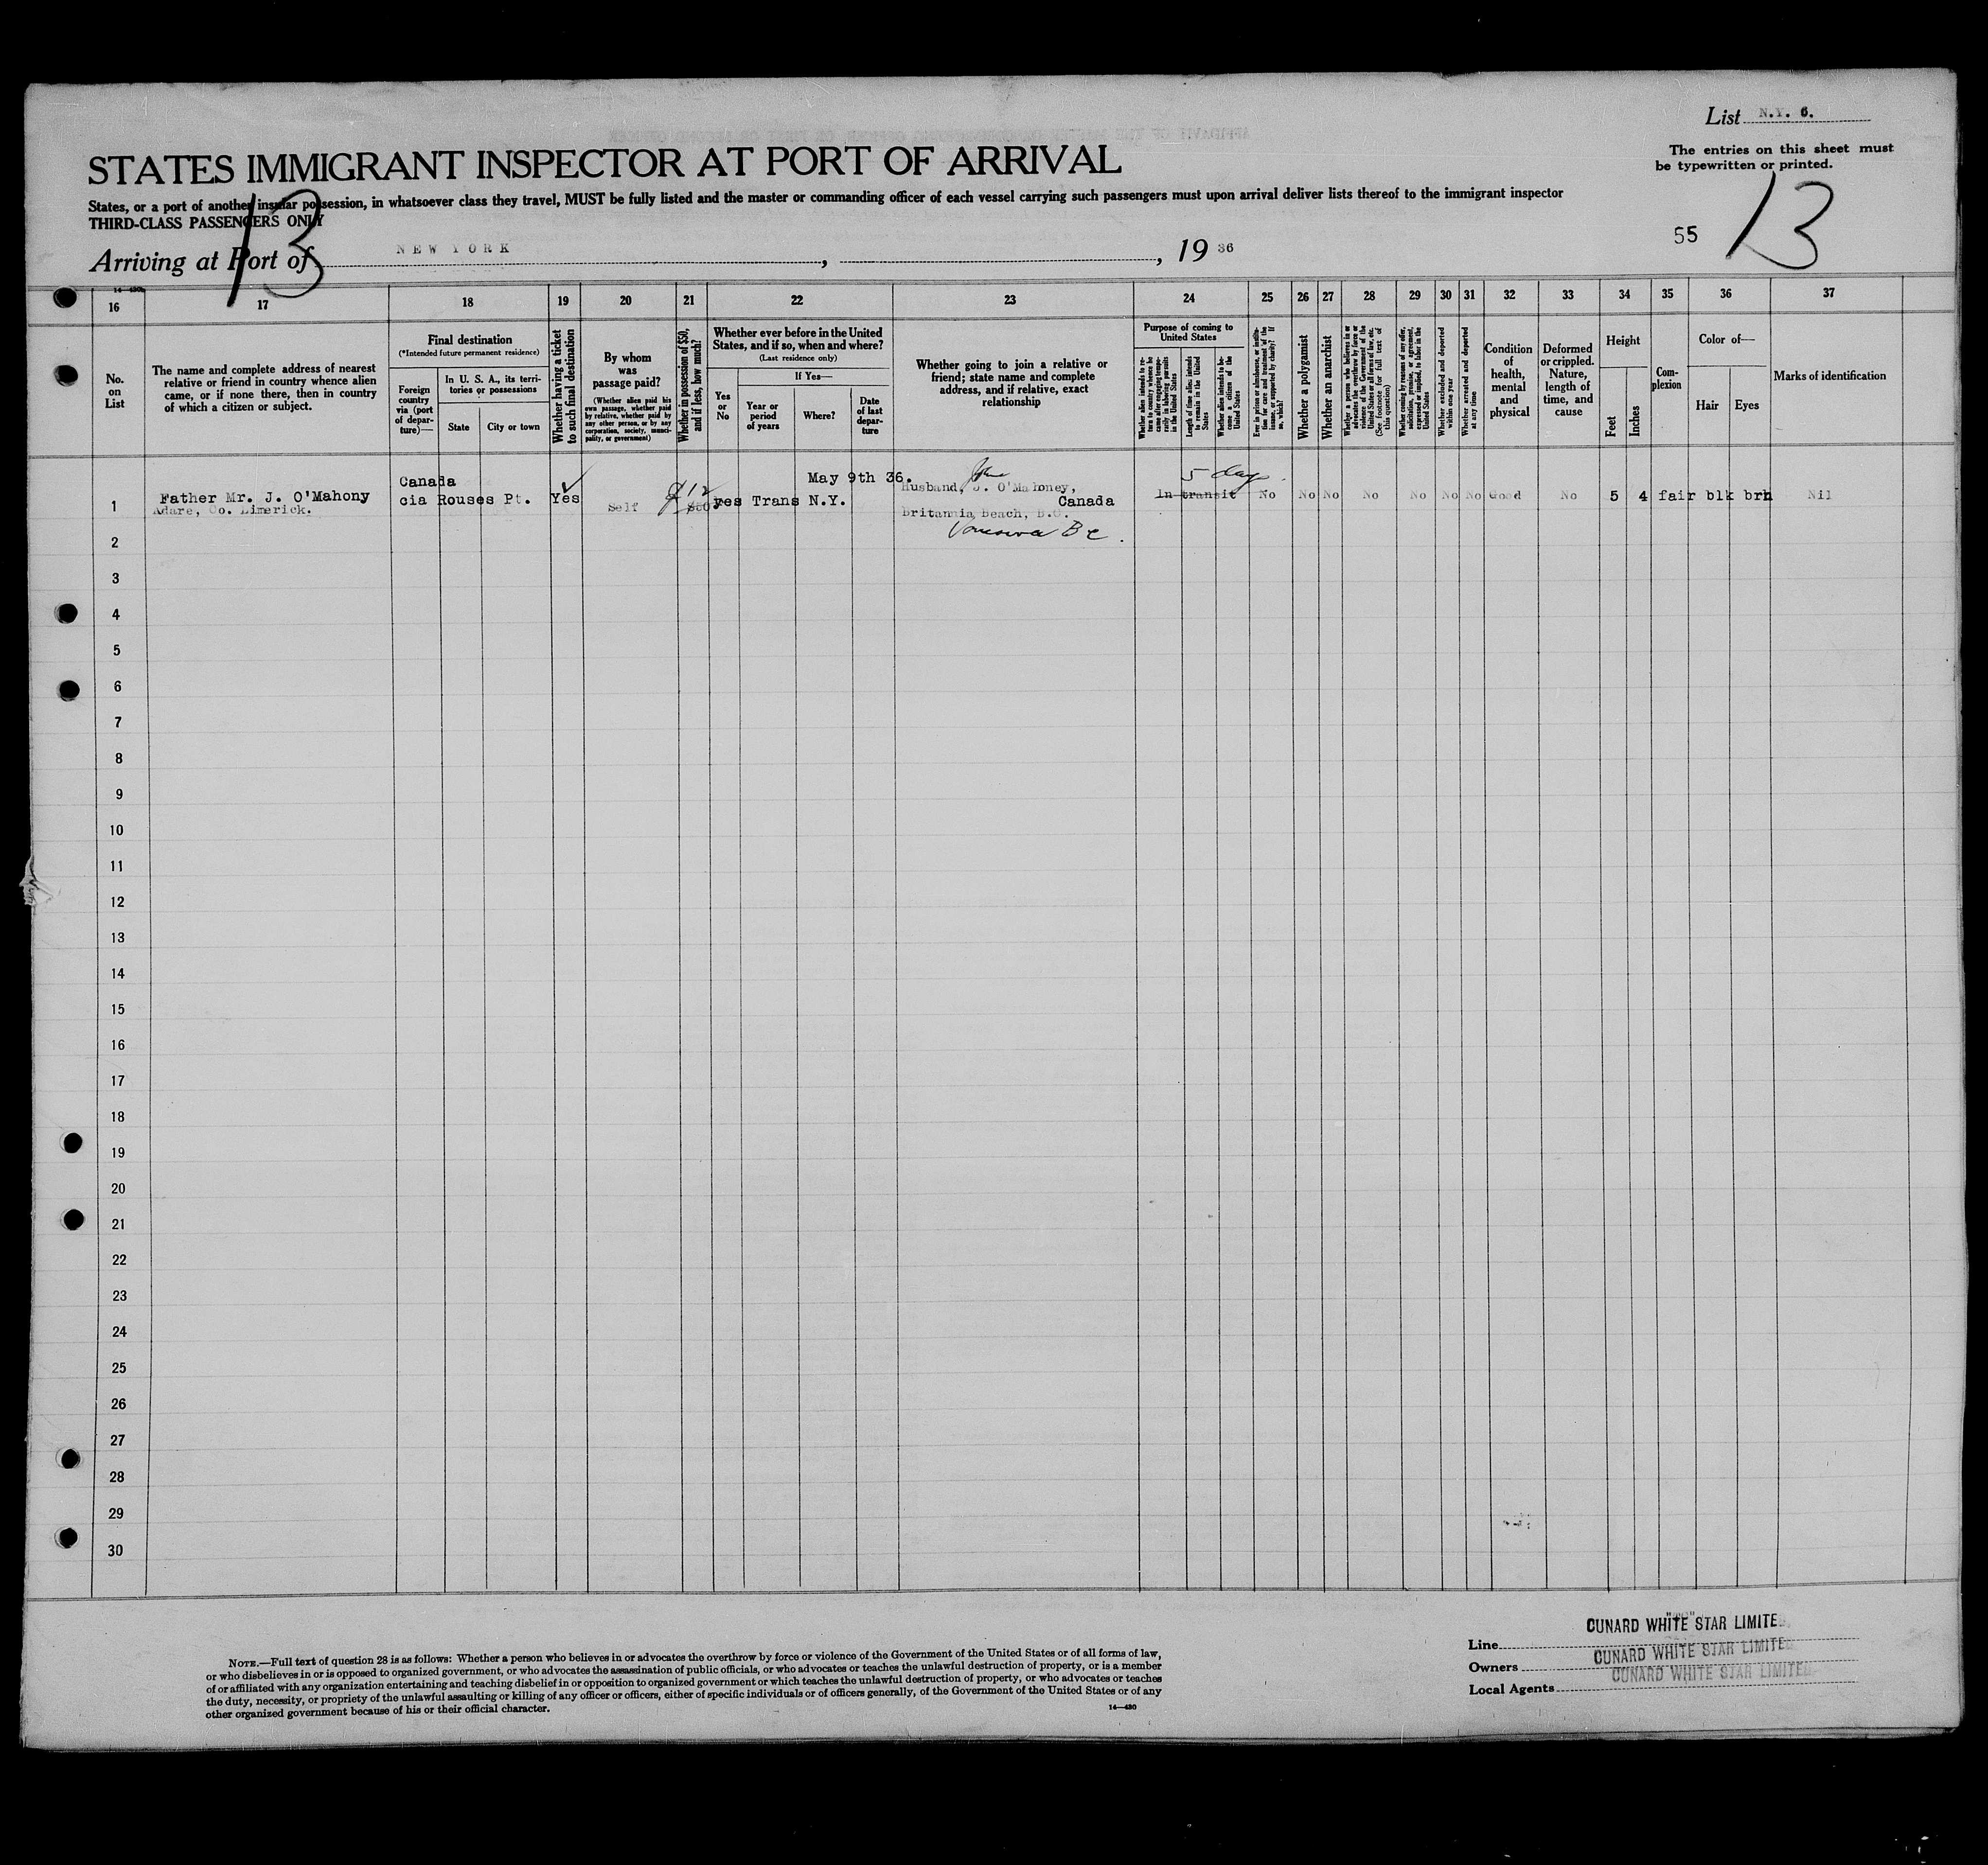 List N.Y. 6.
STATES IMMIGRANT INSPECTOR AT PORT OF ARRIVAL
The entries on this sheet must
be typewritten or printed.
States, or a port of another insular possession, in whatsoever class they travel, MUST be fully listed and the master or commanding officer of each vessel carrying such passengers must upon arrival deliver lists thereof to the immigrant inspector
THIRD-CLASS PASSENGERS ONLY
13
55 13
Arriving at Port of NEW YORK , , 19 36
14—430
16 17 18 19 20 21 22 23 24 25 26 27 28 29 30 31 32 33 34 35 36 37
No.
on
List
The name and complete address of nearest
relative or friend in country whence alien
came, or if none there, then in country
of which a citizen or subject.
Final destination
(*Intended future permanent residence)
Foreign
country
via (port
of depar-
ture)—
In U. S. A., its terri-
tories or possessions
State
City or town
Whether having a ticket
to such final destination
By whom
was
passage paid?
(Whether alien paid his
own passage, whether paid
by relative, whether paid by
any other person, or by any
corporation, society, munici-
pality, or government)
Whether in possession of $50,
and if less, how much?
Whether ever before in the United
States, and if so, when and where?
(Last residence only)
Yes
or
No
If Yes—
Year or
period
of years
Where?
Date
of last
depar-
ture
Whether going to join a relative or
friend; state name and complete
address, and if relative, exact
relationship
Purpose of coming to
United States
Whether alien intends to re-
turn to country whence he
came after engaging tempo-
rarily in laboring pursuits
in the United States
Length of time alien intends
to remain in the United
States
Whether alien intends to be-
come a citizen of the
United States
Ever in prison or almshouse, or institu-
tion for care and treatment of the
insane, or supported by charity? If
so, which?
Whether a polygamist
Whether an anarchist
Whether a person who believes in or
advocates the overthrow by force or
violence of the Government of the
United States or all forms of law, etc.
(See footnote for full text of
this question)
Whether coming by reason of any offer,
solicitation, promise, or agreement,
expressed or implied, to labor in the
United States
Whether excluded and deported
within one year
Whether arrested and deported
at any time
Condition
of
health,
mental
and
physical
Deformed
or crippled.
Nature,
length of
time, and
cause
Height
Feet
Inches
Com-
plexion
Color of—
Hair
Eyes
Marks of identification
1
Father Mr. J. O'Mahony
Adare, Co. Limerick.
Canada
cia Rouses Pt.
Yes
Self
$12
$50
yes Trans N.Y.
May 9th 36.
John
Husband, J. O'Mahoney,
Canada
Britannia Beach, B.C.
Vancouver B C.
5 days
In transit
No No No No No No No Good No 5 4 fair blk brn Nil
2
3
4
5
6
7
8
9
10
11
12
13
14
15
16
17
18
19
20
21
22
23
24
25
26
27
28
29
30
NOTE.—Full text of question 28 is as follows: Whether a person who believes in or advocates the overthrow by force or violence of the Government of the United States or of all forms of law,
or who disbelieves in or is opposed to organized government, or who advocates the assassination of public officials, or who advocates or teaches the unlawful destruction of property, or is a member
of or affiliated with any organization entertaining and teaching disbelief in or opposition to organized government or which teaches the unlawful destruction of property, or who advocates or teaches
the duty, necessity, or propriety of the unlawful assaulting or killing of any officer or officers, either of specific individuals or of officers generally, of the Government of the United States or of any
other organized government because of his or their official character.
14—430
Line CUNARD WHITE STAR LIMITED
Owners CUNARD WHITE STAR LIMITED
Local Agents CUNARD WHITE STAR LIMITED